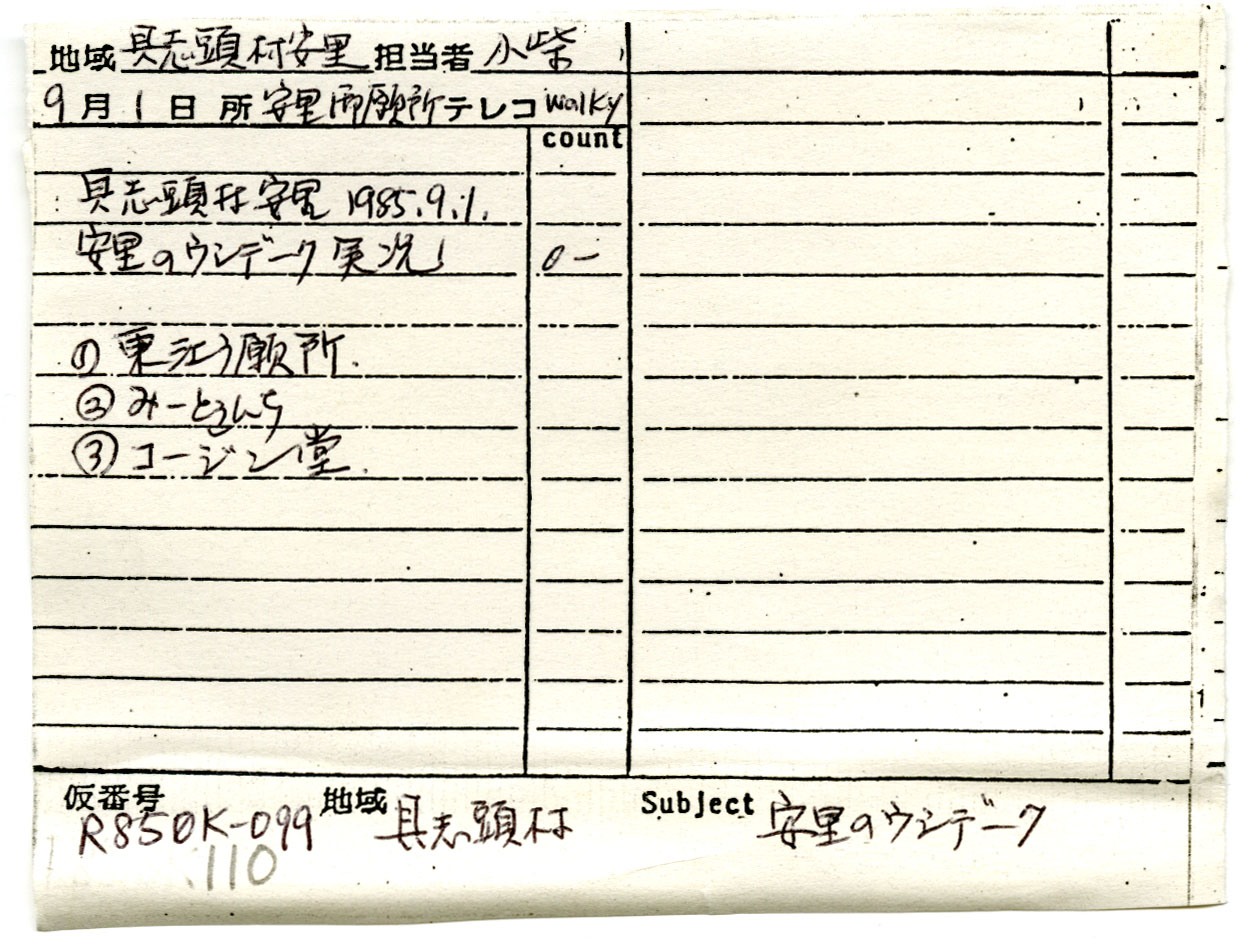 地域 具志頭村安里 担当者 小柴
9月1日 所 安里御願所 テレコ walky
count
具志頭村安里 1985.9.1.
安里のウシデーク実況 0-
① 東江う願所.
② みーとぅんち
③ コージン堂.
仮番号 地域 具志頭村 Subject 安里のウシデーク
R850K-099
110